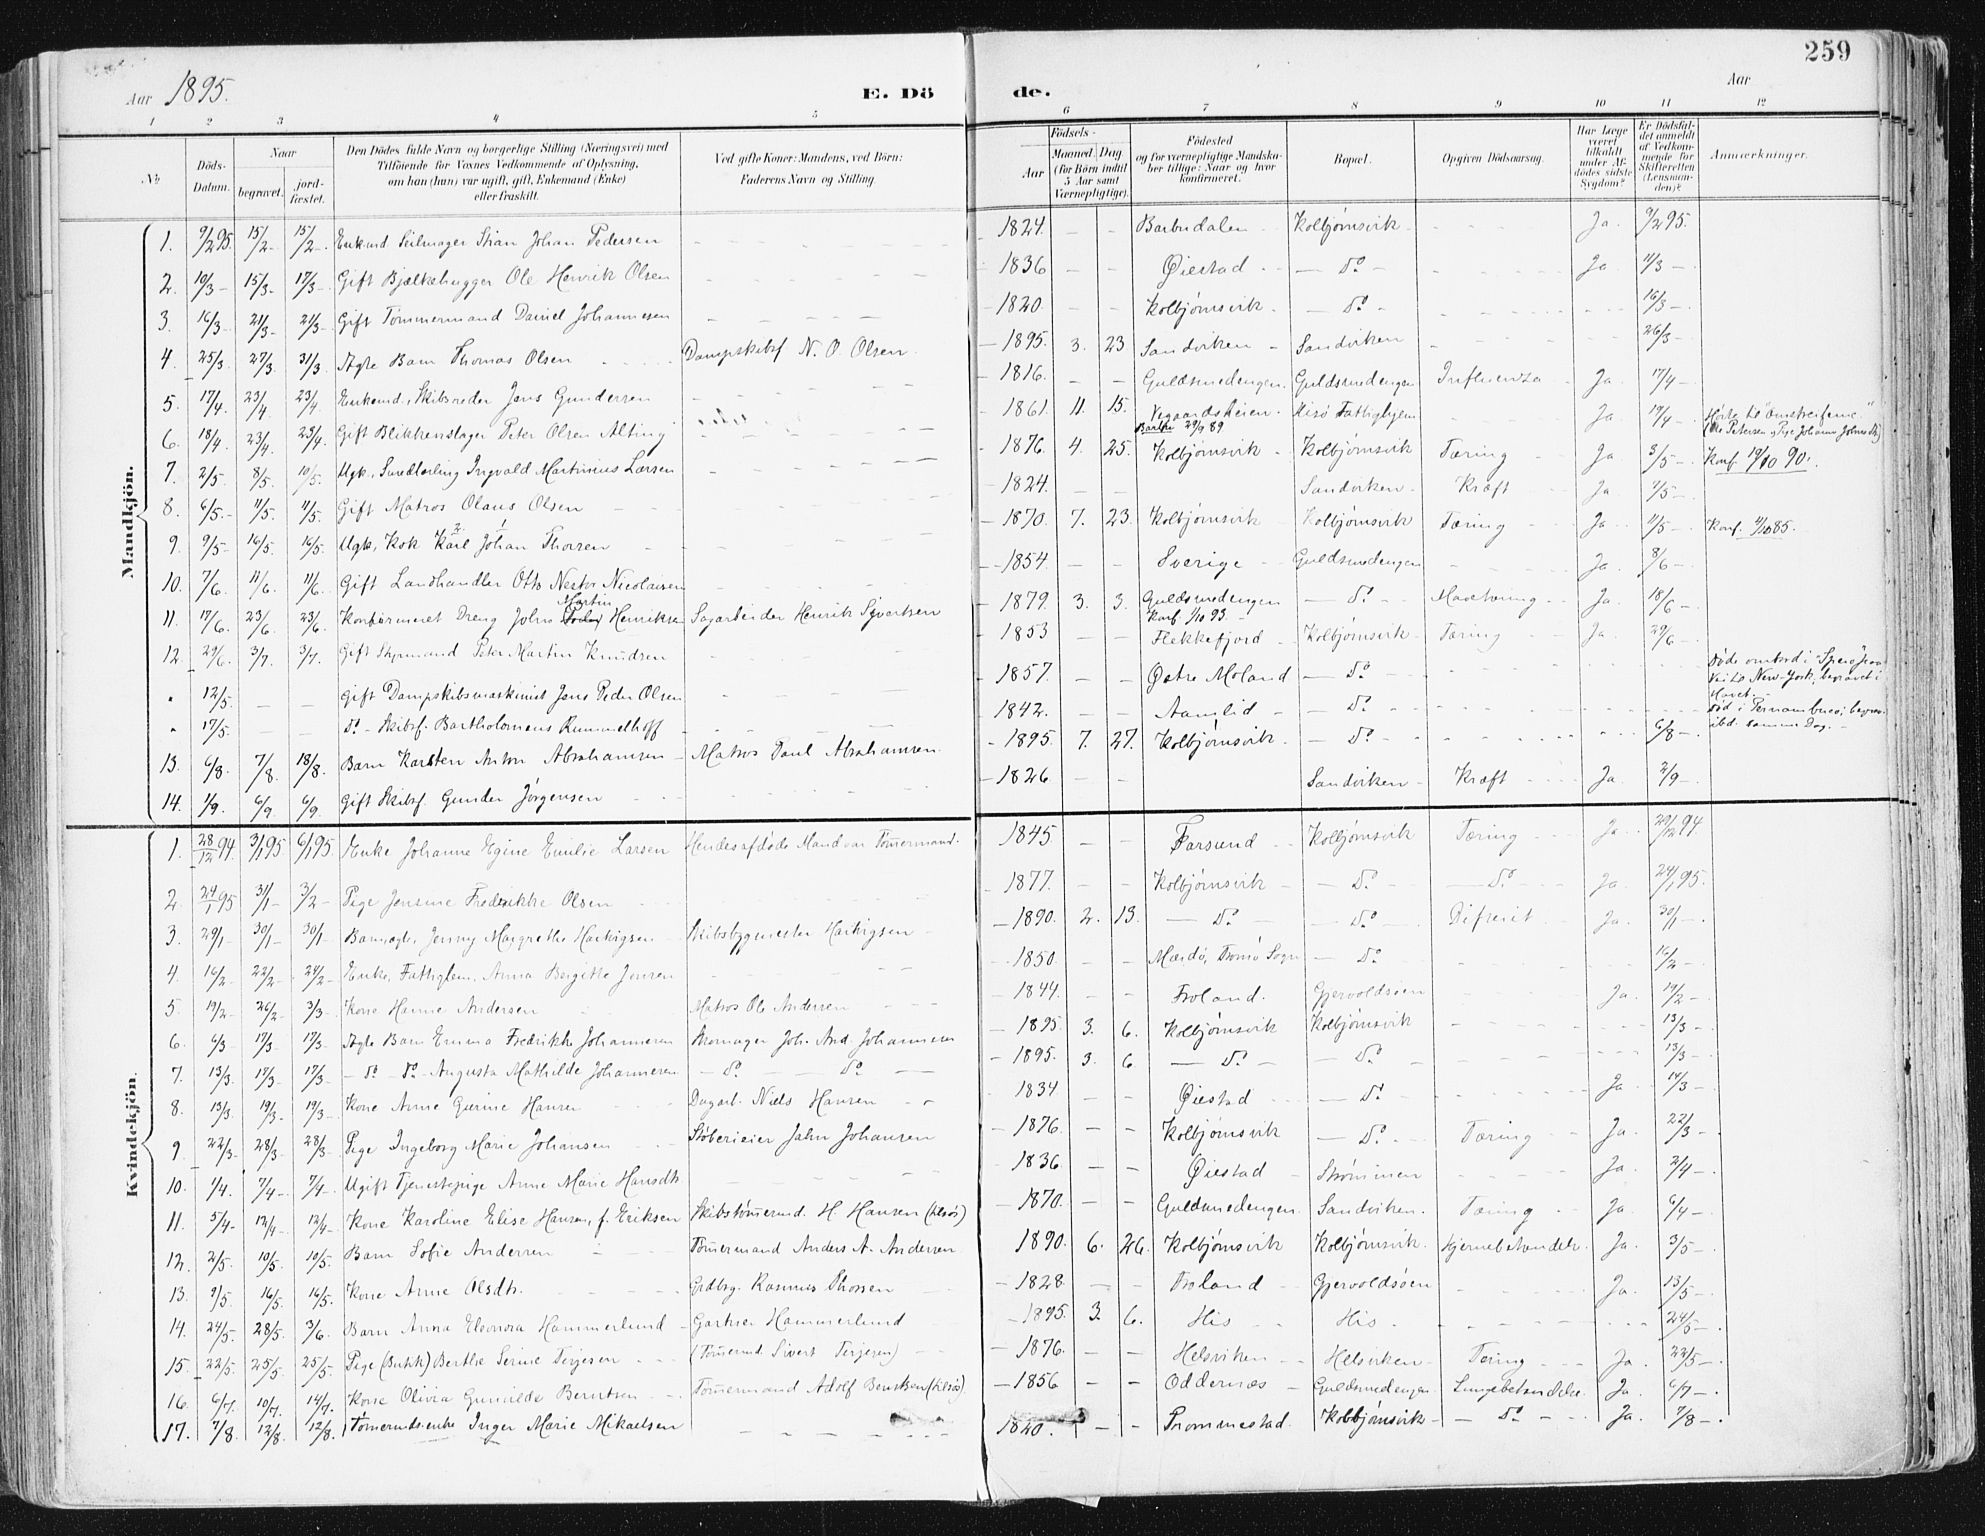 259
Aar 1895.
E. Dö
de.
Aar
1 2 3 4 5 6 7 8 9 10 11 12
No
Döds-Datum.
Naar
begravet.
jord-fæstet.
Den Dödes fulde Navn og borgerlige Stilling (Næringsvei) med Tilföiende for Voxnes Vedkommende af Oplysning, om han (hun) var ugift, gift, Enkemand (Enke) eller fraskilt.
Ved gifte Koner: Mandens, ved Börn: Faderens Navn og Stilling.
Födsels-
Aar
Maaned. Dag
(for Börn indtil 5 Aar samt Værnepligtige).
Födested og for værnepligtige Mandskaber tillige: Naar og hvor konfirmeret.
Bopæl.
Opgiven Dödsaarsag.
Har Læge været tilkaldt under Afdödes sidste Sygdom?
Er Dödsfaldet anmeldt af Vedkommende for Skifteretten (Lensmanden)?
Anmærkninger.
Mandkjön.
1. 9/2 95. 15/2 - 15/2 - Enkemd Seilmager Stian Johan Pedersen 1824. Barbudalen Kolbjørnsvik Ja. 9/2 95.
2. 10/3 - 15/3 - 17/3 - Gift Bjælkehugger Ole Henrik Olsen 1836 Øiestad do Ja 11/3
3. 16/3 - 21/3 - 21/3 - Gift Tømmermand Daniel Johannesen 1820 Kolbjørnsvik do 16/3
4. 25/3 - 27/3 31/3 Ægte Barn Thomas Olsen Dampskibsf N. O. Olsen 1895. 3. 23 Sandviken Sandviken 26/3
5. 17/4 23/4 23/4 Enkemd. Skibsreder Jens Gundersen 1816. Guldsmedengen Guldsmedengen Influenza Ja. 17/4
6. 18/4 23/4 25/4 Gift Blikkenslager Peter Olsen Alting 1861. 11. 15. Vegaardsheien Barbu 29/9 89 Hisö Fattighjem Ja 19/4
7. 2/5 8/5 10/5 Ugk. Snedkerling Ingvald Martinius Larsen 1876. 4. 25. Kolbjørnsvik Kolbjørnsvik Tæring Ja 3/5 Konf. 19/10 90.
8. 6/5 - 11/5 11/5 Gift Matros Olaus Olsen 1824. Sandviken Kræft Ja 7/5
9. 9/5 16/5. 16/5 Ugk. Kok Karl Johan Thorsen 1870. 7. 23. Kolbjørnsvik Kolbjørnsvik Tæring Ja 11/5 Konf. 4/10 85.
10. 7/6 11/6 11/6 Gift Landhandler Otto Nestor Nicolaisen 1854. Sverige Guldsmedengen Ja. 8/6
11. 17/6. 23/6 23/6 Konfirmeret Dreng John Martin Henriksen Sagarbeider Henrik Sjvertsen 1879. 3. 3. Guldsmedengen Konf. 1/10 93. do Ja. 18/6
12. 29/6. 3/7 3/7. Gift Styrmand Peter Martin Knudsen 1853 Flekkefjord Kolbjørnsvik Tæring Ja 29/6
" 12/5 gift Dampskibsmaskinist Jens Peder Olsen 1857. Østre Moland do
" 17/5 do - Skibsf. Bartholomeus Rummelhoff 1842. Aamlid do
13. 6/8 7/8. 18/8. Barn Karsten Anton Abrahamsen Matros Paul Abrahamsen 1895. 7. 27. Kolbjørnsvik do 6/8
14. 1/9. 6/9 6/9 Gift Skibsf. Gunder Jørgensen 1826 Sandviken Kræft Ja. 2/9
Kvindekjön.
1. 28/12 94. 3/1 95 6/1 95. Enke Johanne Egine Emilie Larsen Hendes afdöde Mand var Tömmermand. 1845. Farsund Kolbjørnsvik Tæring Ja. 29/12 94.
2. 24/1 95 31/1 - 3/2 - Pige Jensine Fredrikke Olsen 1877. Kolbjørnsvik do do Ja 24/1 95.
3. 29/1 - 30/1 - 30/1 Barn ægte Jenny Margrethe Hartvigsen Skibsbygmester Hartvigsen 1890. 2. 13. do do Difterit Ja. 30/1
4. 16/2 22/2 - 24/2 - Enke, Fattiglem, Anna Bergitte Jensen 1850. Mærdö, Tromö Sogn do 16/2
5. 19/2 - 26/2 3/3 - Kone Hanne Andersen Matros Ole Andersen 1844. Froland. Gjervoldsøen Ja. 19/2
6. 6/3 - 17/3 - 17/3 - Ægte Barn Emma Fredrikke Johannesen Skomager Joh. And. Johannesen 1895. 3. 6. Kolbjørnsvik Kolbjørnsvik 13/3
7. 13/3 17/3 17/3 - do - do - Augusta Mathilde Johannesen do do 1895. 3. 6 do do 13/3
8. 13/3 19/3 19/3 Kone Anne Gurine Hansen Dagarb. Niels Hansen 1834 Øiestad do Ja 14/3
9. 22/3 28/3 28/3 Pige Ingeborg Marie Johansen Støberieier Jahn Johansen 1876. Kolbjørnsvik do Tæring Ja. 22/3
10. 1/4. 7/4 7/4 Ugift Tjenestepige Anne Marie Hansdtr. 1836. Øiestad Strømmen Ja. 2/4
11. 5/4 12/4 12/4 Kone Karoline Elise Hansen, f. Eriksen Skibstømmermd. H. Hansen 1870. Guldsmedengen Sandviken. Tæring Ja. 6/4
12. 2/5 10/5 10/5 Barn Sofie Andersen Tömmermand Anders A. Andersen 1890. 6. 26. Kolbjørnsvik Kolbjørnsvik. Hjernebetændelse Ja. 3/5
13. 9/5 16/5. 16/5. Kone Anne Olsdtr. Grdbrg. Rasmus Thorsen 1828. Froland Gjervoldsøen Ja. 13/5
14. 24/5 28/5. 3/6. Barn Anna Eleonora Hammerlund Gartner Hammerlund 1895. 3. 6. His His 24/5
15. 22/5. 25/5 25/5 Pige Berthe Serine Terjesen (Tömmermd. Sivert Terjesen) 1876. Helsviken Helsviken Tæring Ja 22/5
16. 6/7. 10/7. 14/7. Kone Olivia Gunnilde Berntsen Tömmermand Adolf Berntsen 1856 Oddernæs Guldsmedengen Lungebetændelse Ja 6/7
17. 7/8. 12/8. 12/8. Tömermds.enke Inger Marie Mikaelsen 1820. Kolbjørnsvik do Ja. 7/8